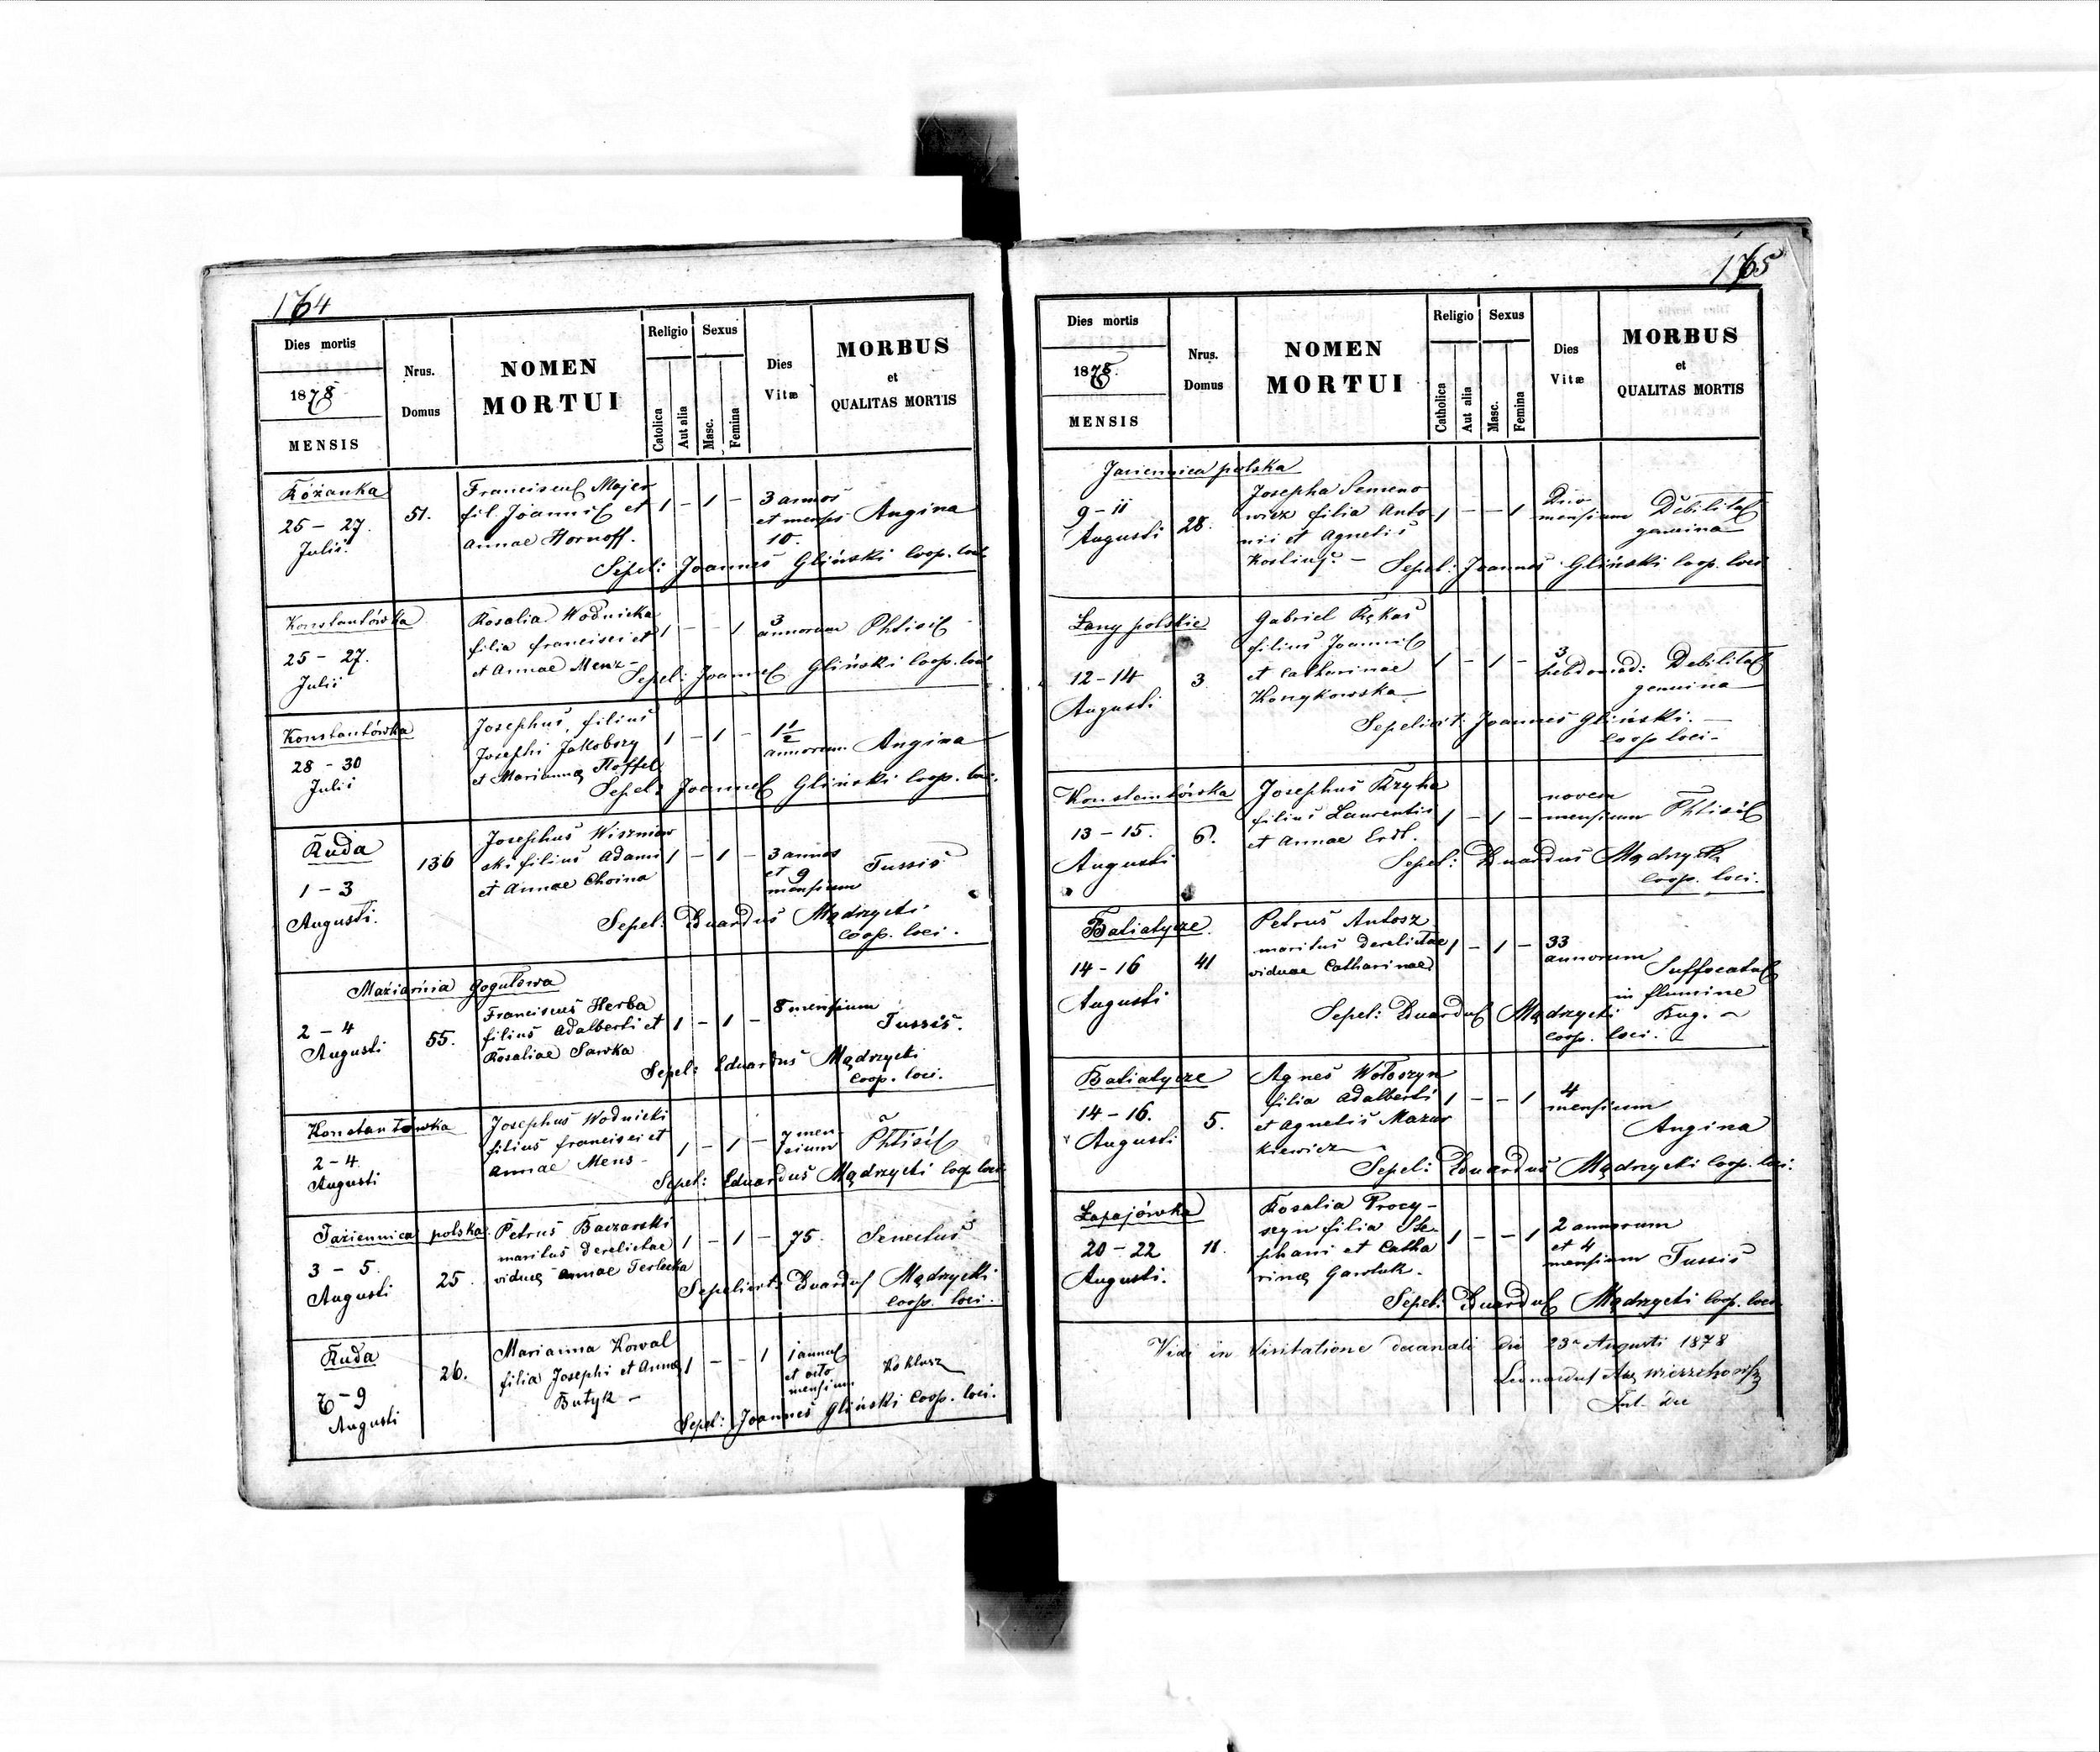 164
Dies mortis
1878
MENSIS
Nrus.
Domus
NOMEN
MORTUI
Religio
Catolica
Aut alia
Sexus
Masc.
Femina
Dies
Vitæ
MORBUS
et
QUALITAS MORTIS
Rożanka
25 - 27.
Julii.
51.
Franciscus Majer
fil. Joannis et
annae Hornoff.
1 - 1 -
3 annos
et menses
10.
Angina
Sepel: Joannes Gliński Coop. loci
Konstantówka
25 - 27.
Julii
Rosalia Wodnicka
filia francisci et
et annae Menz -
1 - - 1
3
annorum
Phtisis
Sepel: Joannes Gliński Coop. loci
Konstantówka
28 - 30
Julii
Josephus, filius
Josephi Jakobszy
et Mariannę Hoffel
1 - 1 -
1 1/2
annorum
Angina
Sepel: Joannes Gliński Coop. loci.
Ruda
1 - 3
Augusti.
136
Josephus Wiszniow
ski filius adami
et annae Choina
1 - 1 -
3 annos
et 9
mensium
Tussis
Sepel: Eduardus Mądrzycki
Coop. loci.
Maziarnia Gogutowa
2 - 4
Augusti
55.
Franciscus Herba
filius adalberti et
Rosaliae Sawka
1 - 1 -
8 mensium
Tussis.
Sepel: Eduardus Mądrzycki
Coop. loci.
Konstantówka
2 - 4
Augusti
Josephus Wodnicki
filius francisci et
annae Mens -
1 - 1 -
7 men-
sium
Phtisis
Sepel: Eduardus Mądrzycki Coop loci
Jaziennica polska
3 - 5.
Augusti
25.
Petrus Baczarski
maritus derelictae
viduę annae Terlecka
1 - 1 -
75.
Senectus
Sepelivit: Eduardus Mądrzycki
Coop. loci.
Ruda
- 9
Augusti
26.
Marianna Kowal
filia Josephi et annę
Butyk -
1 - - 1
1 annus
et octo
mensium
Koklusz
Sepel: Joannes Gliński Coop. loci.
165
Dies mortis
1878.
MENSIS
Nrus.
Domus
NOMEN
MORTUI
Religio
Catholica
Aut alia
Sexus
Masc.
Femina
Dies
Vitæ
MORBUS
et
QUALITAS MORTIS
Jaziennica polska
9 - 11
Augusti
28.
Josepha Semeno
wicz filia anto
nii et agnetis
1 - - 1
Duo
mensium
Debilitas
genuina
Sepel: Joannes Gliński Coop. loci
Łany polskie
12 - 14
Augusti
3
Gabriel Rękas
filius Joannis
et catharinae
Konykowska
1 - 1 -
3
hebdomad:
Debilitas
genuina
Sepelivit: Joannes Gliński. -
Coop loci -
Konstantówka
13 - 15.
Augusti
6.
Josephus Krzyha
filius Laurentii
et annae Erdt.
1 - 1 -
novem
mensium
Phtisis
Sepel: Eduardus Mądrzycki
Coop. loci.
Batiatycze.
14 - 16
Augusti
41
Petrus Antosz
maritus derelictae
viduae Catharinae
1 - 1 -
33
annorum
Suffocatus
in flumine
Bug. -
Sepel: Eduardus Mądrzycki
Coop. loci.
Batiatycze
14 - 16.
Augusti
5.
Agnes Wołoszyn
filia adalberti
et agnetis Mazur
kiewicz
1 - - 1
4
mensium
Angina
Sepel: Eduardus Mądrzycki Coop. loci.
Łapajówka
20 - 22
Augusti.
11.
Rosalia Procy-
szyn filia Ste
phani et Catha
rinę Gawluk.
1 - - 1
2 annorum
et 4
mensium
Tussis
Sepel: Eduardus Mądrzycki Coop. loci
Vidi in Visitatione decanali die 23a Augusti 1878
Leonardus